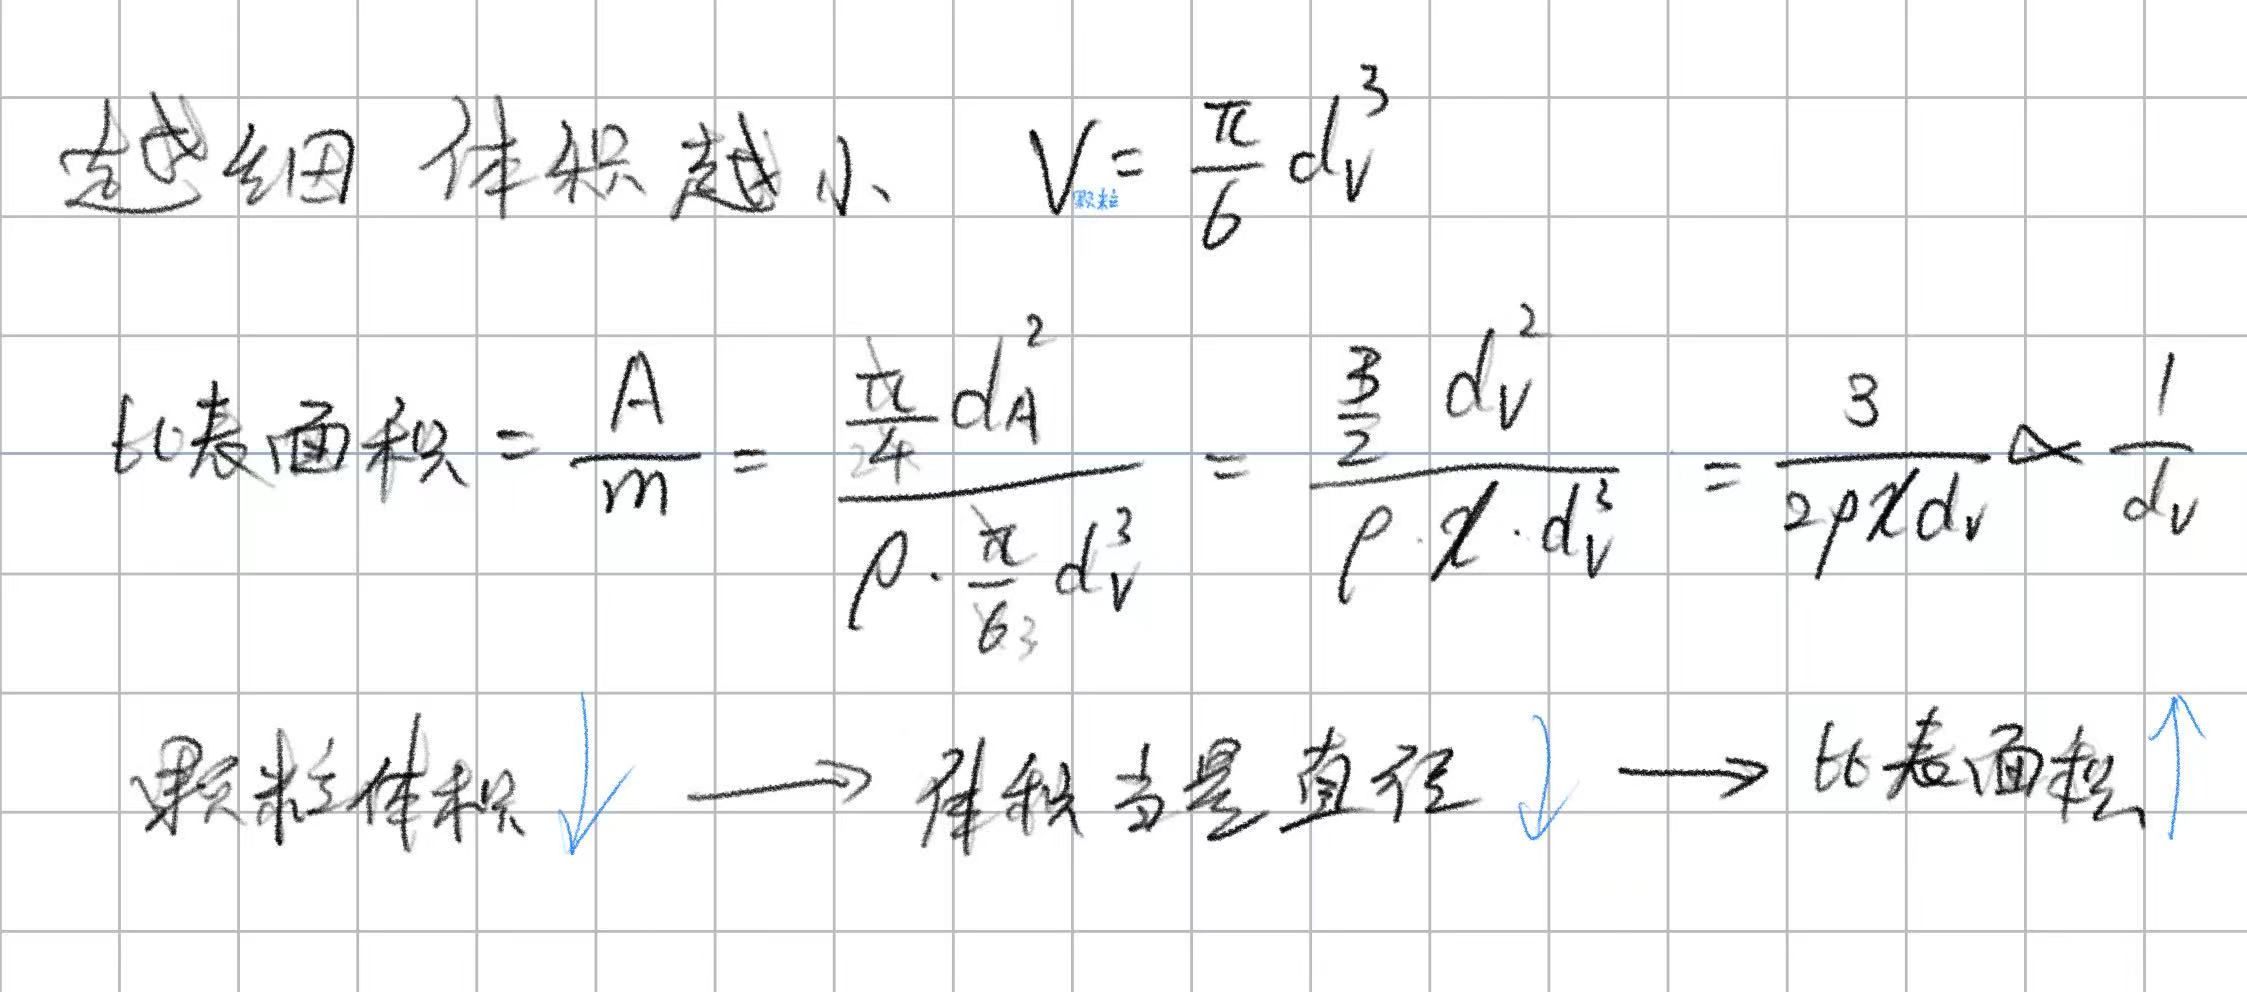 越细 体积越小 V颗粒 = π/6 d_V^3
比表面积 = A/m = (π/4 d_A^2)/(ρ·π/6 d_V^3) = (3/2 d_V^2)/(ρ·χ·d_V^3) = 3/(2ρχd_V) ∝ 1/d_V
颗粒体积↓ → 体积当量直径↓ → 比表面积↑